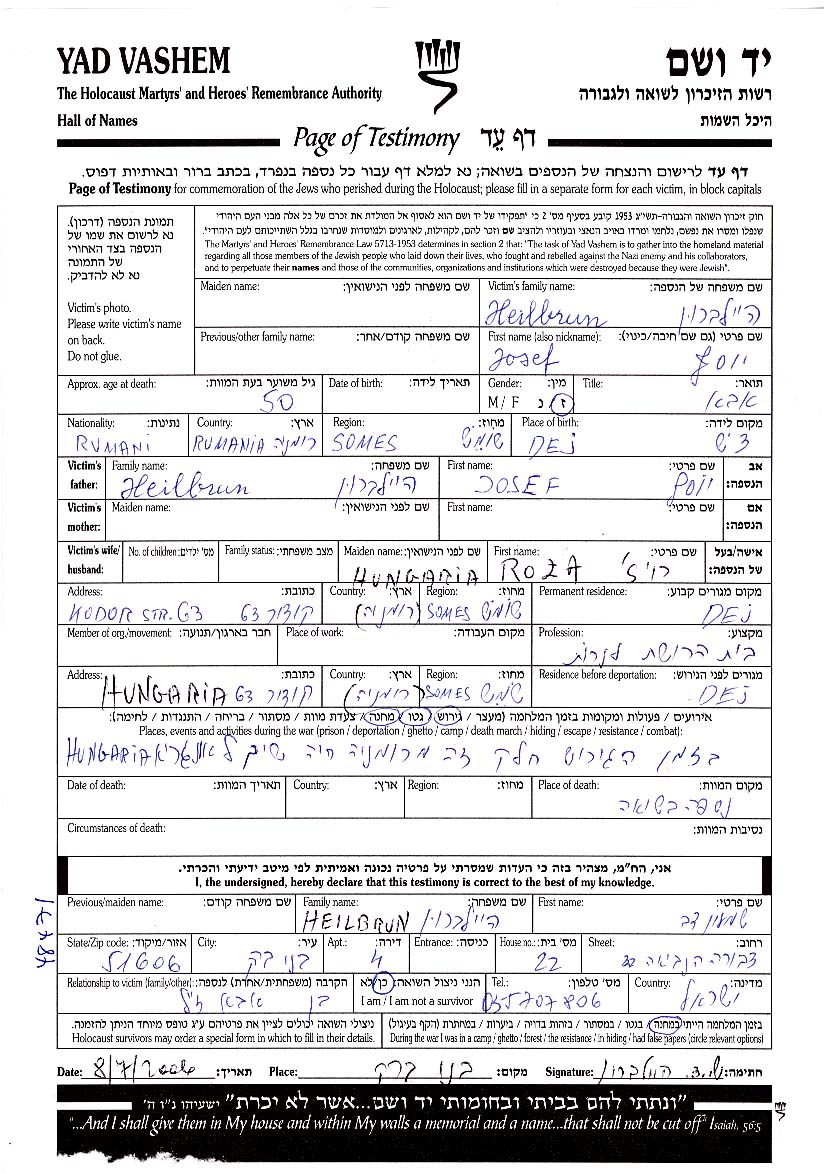 YAD VASHEM
יד ושם
The Holocaust Martyrs' and Heroes' Remembrance Authority
רשות הזיכרון לשואה ולגבורה
Hall of Names
היכל השמות
Page of Testimony דף עד
דף עד לרישום והנצחה של הנספים בשואה; נא למלא דף עבור כל נספה בנפרד, בכתב ברור ובאותיות דפוס.
Page of Testimony for commemoration of the Jews who perished during the Holocaust; please fill in a separate form for each victim, in block capitals
תמונת הנספה (דרכון).
נא לרשום את שמו של
הנספה בצד האחורי
של התמונה
נא לא להדביק.
Victim's photo.
Please write victim's name
on back.
Do not glue.
חוק זיכרון השואה והגבורה-תשי"ג 1953 קובע בסעיף מס' 2 כי "תפקידו של יד ושם הוא לאסוף אל המולדת את זכרם של כל אלה מבני העם היהודי
שנפלו ומסרו את נפשם, נלחמו ומרדו באויב הנאצי ובעוזריו ולהציב שם וזכר להם, לקהילות, לארגונים ולמוסדות שנחרבו בגלל השתייכותם לעם היהודי".
The Martyrs' and Heroes' Remembrance Law 5713-1953 determines in section 2 that: "The task of Yad Vashem is to gather into the homeland material
regarding all those members of the Jewish people who laid down their lives, who fought and rebelled against the Nazi enemy and his collaborators,
and to perpetuate their names and those of the communities, organizations and institutions which were destroyed because they were Jewish".
Maiden name: שם משפחה לפני הנישואין: Victim's family name: שם משפחה של הנספה:
Heilbrun היילברון
Previous/other family name: שם משפחה קודם/אחר: First name (also nickname): שם פרטי (גם שם חיבה/כינוי):
Josef יוסף
Approx. age at death: גיל משוער בעת המוות: Date of birth: תאריך לידה: Gender: מין: Title: תואר:
50 M / F ז נ אבא
Nationality: נתינות: Country: ארץ: Region: מחוז: Place of birth: מקום לידה:
RUMANI RUMANIA רומניה SOMES שומש DEJ דש
Victim's father: Family name: שם משפחה: First name: שם פרטי: אב הנספה:
Heilbrun היילברון JOSEF יוסף
Victim's mother: Maiden name: שם לפני הנישואין: First name: שם פרטי: אם הנספה:
Victim's wife/ husband: No. of children: מס' ילדים: Family status: מצב משפחתי: Maiden name: שם לפני הנישואין: First name: שם פרטי: אישה/בעל של הנספה:
HUNGARIA ROZA
Address: כתובת: Country: ארץ: Region: מחוז: Permanent residence: מקום מגורים קבוע:
KODOR STR. 63 קודור 63 (רומניה) SOMES שומש DEJ
Member of org./movement: חבר בארגון/תנועה: Place of work: מקום העבודה: Profession: מקצוע:
בית חרושת לנרות
Address: כתובת: Country: ארץ: Region: מחוז: Residence before deportation: מגורים לפני הגירוש:
HUNGARIA קודור 63 (רומניה) SOMES שומש DEJ
אירועים / פעולות ומקומות בזמן המלחמה (מעצר / גירוש / גטו / מחנה / צעדת מוות / מסתור / בריחה / התנגדות / לחימה):
Places, events and activities during the war (prison / deportation / ghetto / camp / death march / hiding / escape / resistance / combat):
בזמן הגירוש חלק זה מרומניה היה שייך להונגריא HUNGARIA
Date of death: תאריך המוות: Country: ארץ: Region: מחוז: Place of death: מקום המוות:
נספה בשואה
Circumstances of death: נסיבות המוות:
אני, הח"מ, מצהיר בזה כי העדות שמסרתי על פרטיה נכונה ואמיתית לפי מיטב ידיעתי והכרתי.
I, the undersigned, hereby declare that this testimony is correct to the best of my knowledge.
Previous/maiden name: שם משפחה קודם: Family name: שם משפחה: First name: שם פרטי:
HEILBRUN היילברון שמעון דב
State/Zip code: אזור/מיקוד: City: עיר: Apt.: דירה: Entrance: כניסה: House no.: מס' בית: Street: רחוב:
51606 בני ברק 4 22 דבורה הנביאה 22
Relationship to victim (family/other): הקרבה (משפחתית/אחרת) לנספה: הנני ניצול השואה: כן/לא Tel.: מס' טלפון: Country: מדינה:
בן אבא ז"ל I am / I am not a survivor 035707806 ישראל
ניצולי השואה יכולים לציין את פרטיהם ע"ג טופס מיוחד הניתן להזמנה. בזמן המלחמה הייתי במחנה / בגטו / במסתור / בזהות בדויה / ביערות / במחתרת (הקף בעיגול)
Holocaust survivors may order a special form in which to fill in their details. During the war I was in a camp / ghetto / forest / the resistance / in hiding / had false papers (circle relevant options)
Date: 8/7/2006 תאריך: Place: בני ברק מקום: Signature: ש.ד. היילברון חתימה:
"ונתתי להם בביתי ובחומותי יד ושם...אשר לא יכרת" ישעיהו נ"ו ה'
"...And I shall give them in My house and within My walls a memorial and a name...that shall not be cut off" Isaiah, 56:5